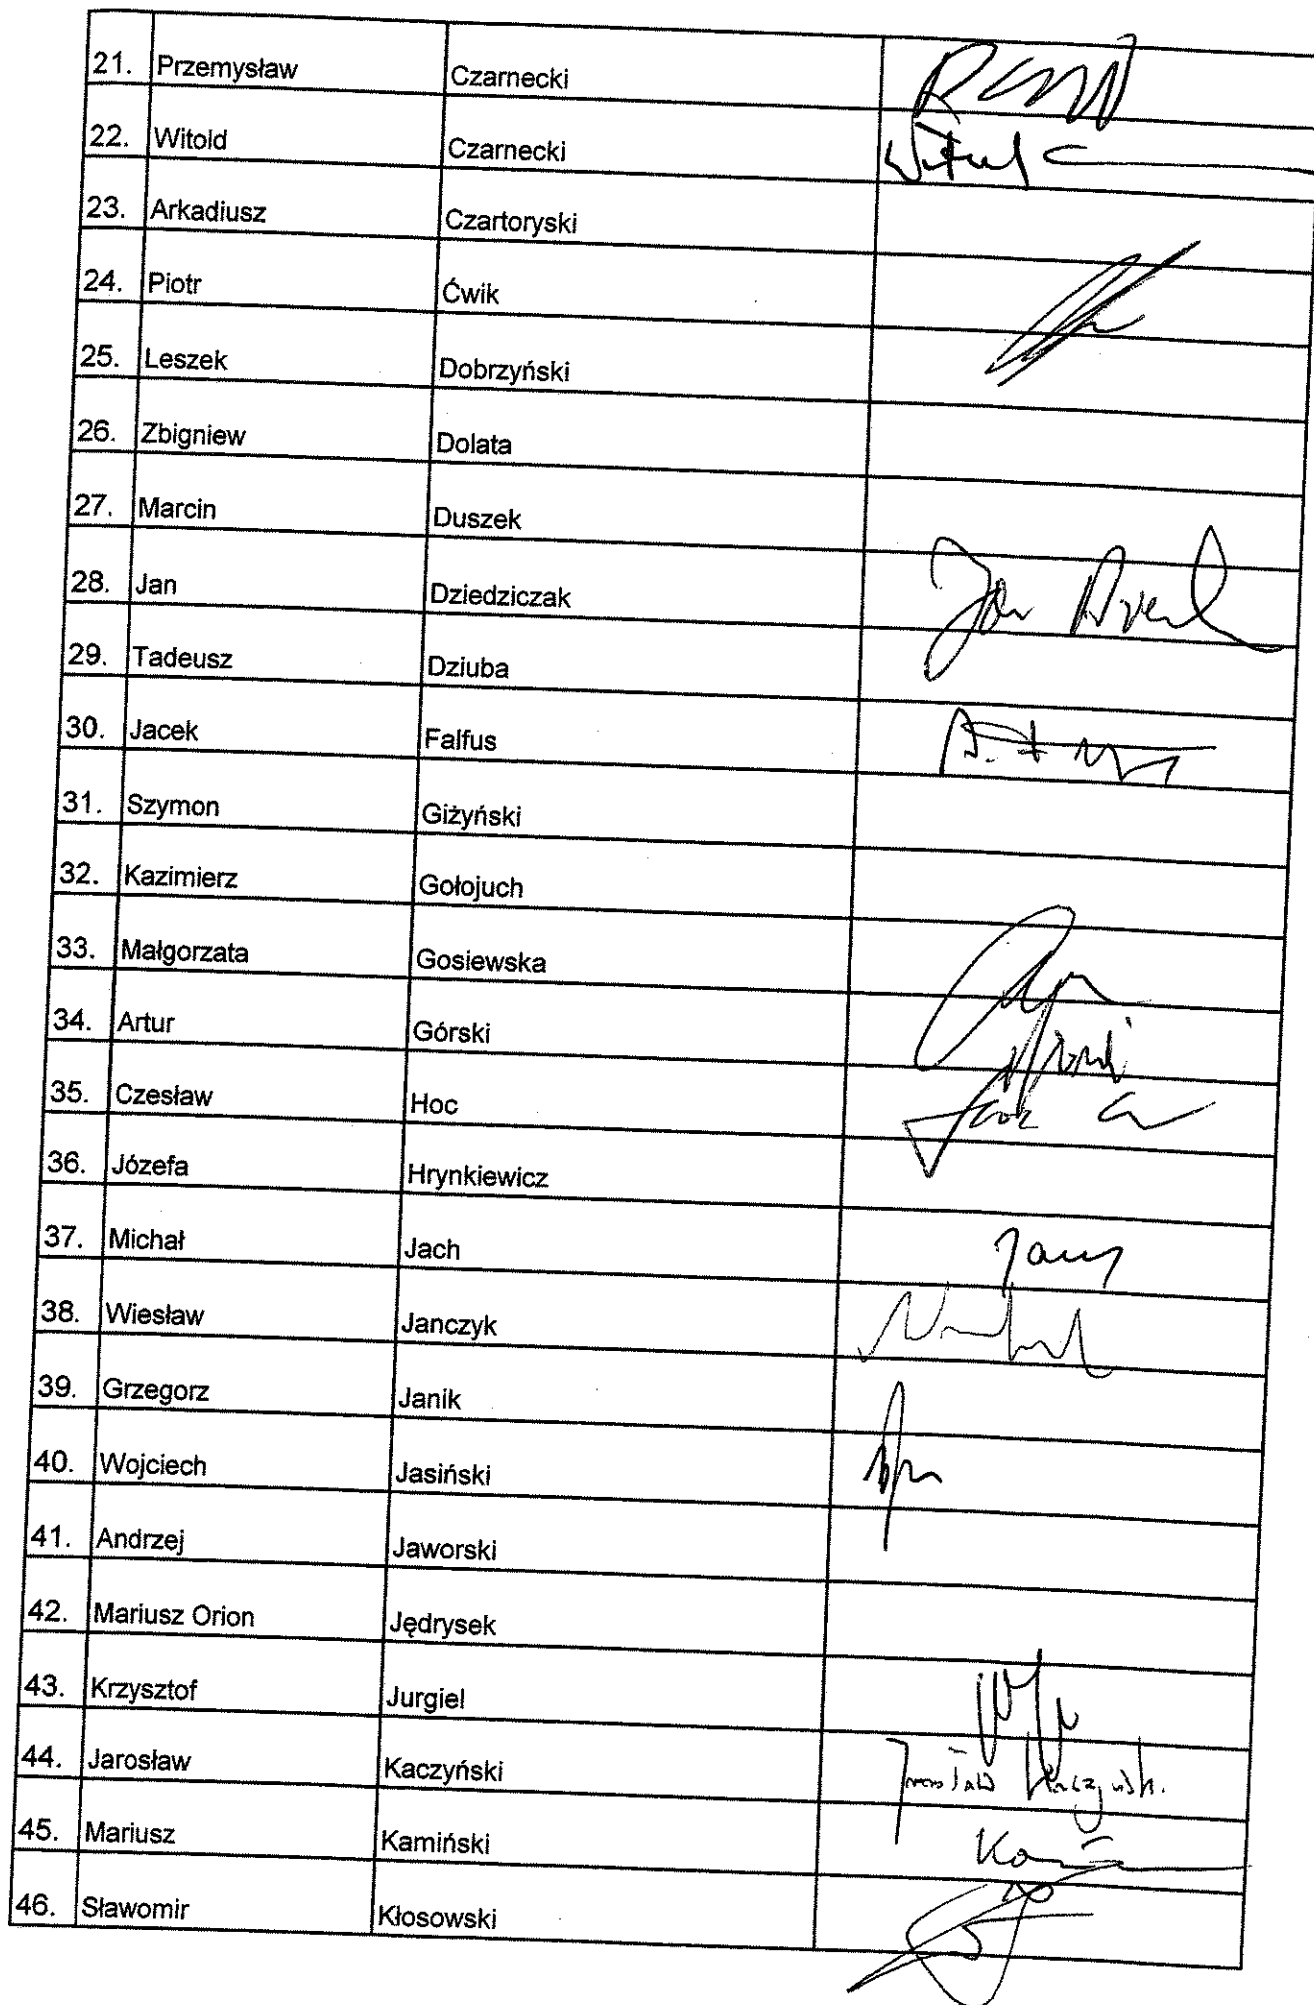 21. Przemysław Czarnecki
22. Witold Czarnecki
23. Arkadiusz Czartoryski
24. Piotr Ćwik
25. Leszek Dobrzyński
26. Zbigniew Dolata
27. Marcin Duszek
28. Jan Dziedziczak Jan
29. Tadeusz Dziuba
30. Jacek Falfus
31. Szymon Giżyński
32. Kazimierz Gołojuch
33. Małgorzata Gosiewska
34. Artur Górski
35. Czesław Hoc
36. Józefa Hrynkiewicz
37. Michał Jach
38. Wiesław Janczyk
39. Grzegorz Janik
40. Wojciech Jasiński
41. Andrzej Jaworski
42. Mariusz Orion Jędrysek
43. Krzysztof Jurgiel
44. Jarosław Kaczyński Jarosław Kaczyński
45. Mariusz Kamiński
46. Sławomir Kłosowski